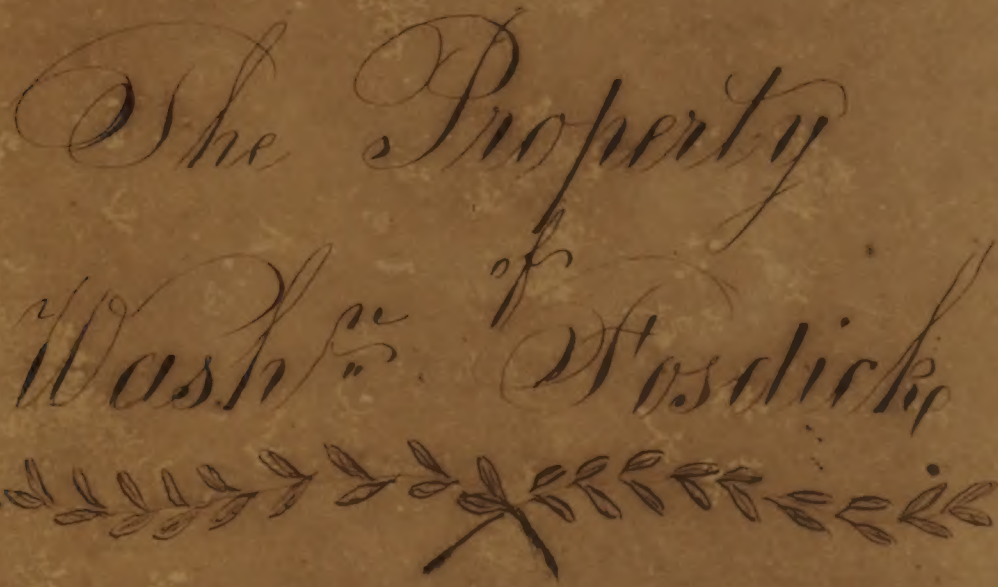 The Property
of
Washⁿ Fosdick,